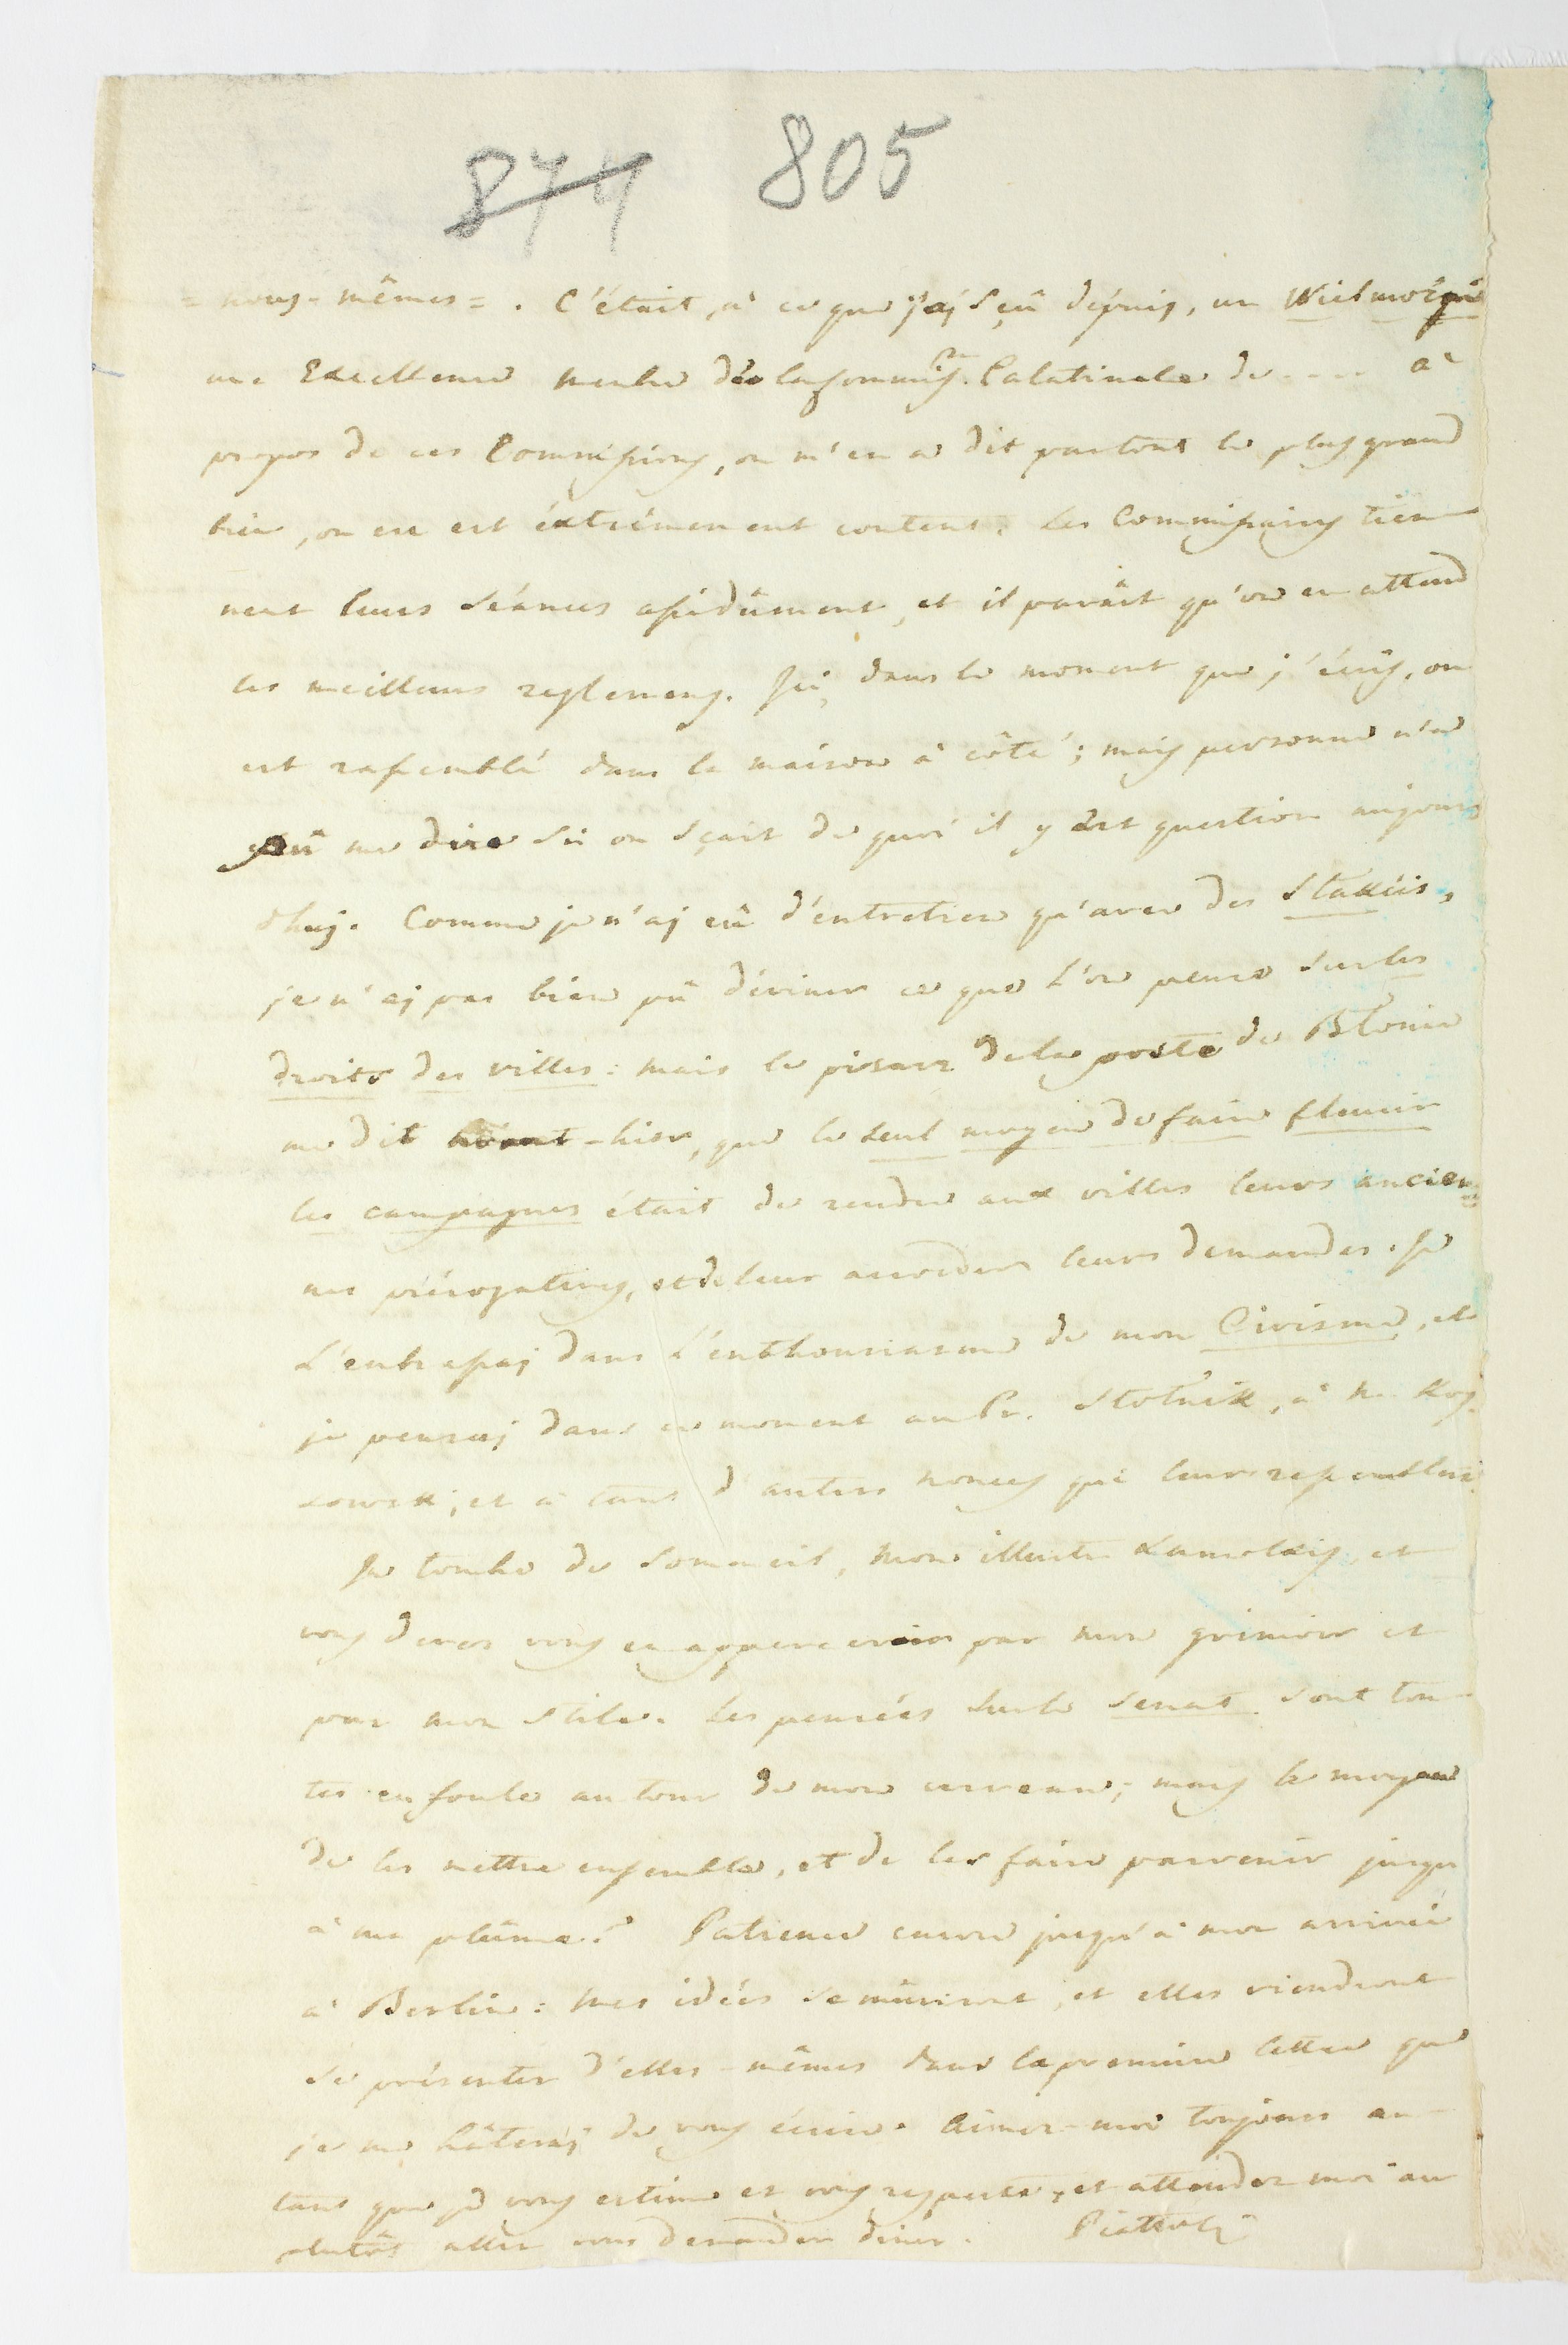 844 805
= nous-mêmes = . C'était, à ce que j'aj sçû dépuis, un Wielmożny
une Excellence membre de la Commiss.on Palatinale de .... à
propos de ces Commissions, on m'en a dit partout le plus grand
bien, on en est éxtrémement content. Les Commissaires tien
nent leurs séances assidûment, et il paraît qu'on en attend
les meilleurs reglemens. Ici, dans le moment que j'écris, on
est rassemblé dans la maison à côté; mais personne n'a
pû me dire si on sçait de quoi il y est question aujour
d'huj. Comme je n'aj eû d'entretien qu'avec des
je n'aj pas bien pû déviner ce que l'on pense sur les
droits des villes: mais le pisarz de la poste de Błonie
me dit avant-hier, que le seul moyen de faire fleurir
les campagnes était de rendre aux villes leurs ancien
nes prérogatives, et de leur accorder leurs demandes. Je
l'embrassaj dans l'enthousiasme de mon Civisme, et
je pensaj dans ce moment au Pr. Stolnik, à M.
et à tant d'autres nonces qui leur ressemblent.
Je tombe de sommeil, mon illustre et
vous devez vous en appercevoir par mon grimoire et
par mon stile. Les pensées sur le Senat sont tou
tes en foule autour de mon cerveau; mais le moyen
de les mettre ensemble, et de les faire parvenir jusqu
à ma plûme? Patience encore jusqu'à mon arrivée
à Berlin: mes idées se mûriront, et elles viendront
se présenter d'elles-mêmes dans la premiere lettre que
je me hâteraj de vous écrire. Aimez-moi toujours au
tant que je vous estime et vous respecte, et attendez moi au
plutôt aller vous demander diner. Piattoli